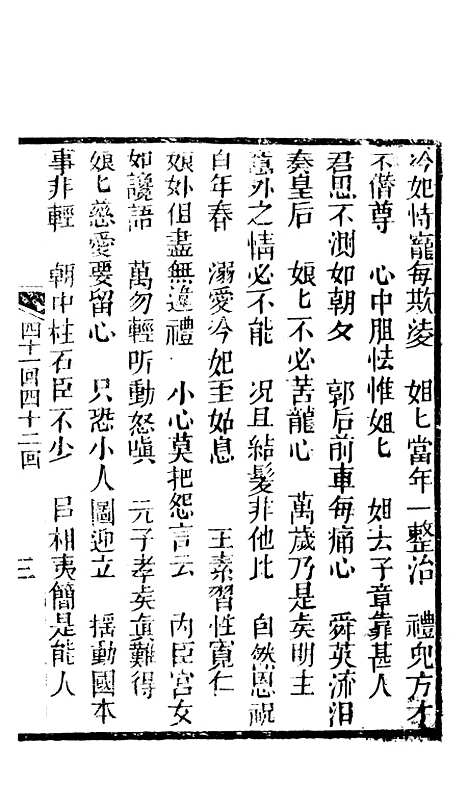 泠妃恃寵每欺凌　姐匕當年一整治　禮皃方才
不僭尊　心中胆怯惟姐匕　姐去子章靠甚人
君恩不測如朝夕　郭后前車每痛心　舜英流泪
奏皇后　娘匕不必苦龍心　萬歲乃是矣明主
意外之情必不能　况且結髮非他比　自然恩祝
百年春　溺愛泠妃至姑息　王素習性寬仁
娘妳但盡無違禮　小心莫把怨言云　内臣宫女
如讒語　萬勿輕听動怒嗔　元子孝矣眞難得
娘匕慈愛要留心　只恐小人圖迎立　揺動國本
事非輕　朝中柱石臣不少　吕相夷簡是能人
四十一回四十二回　三